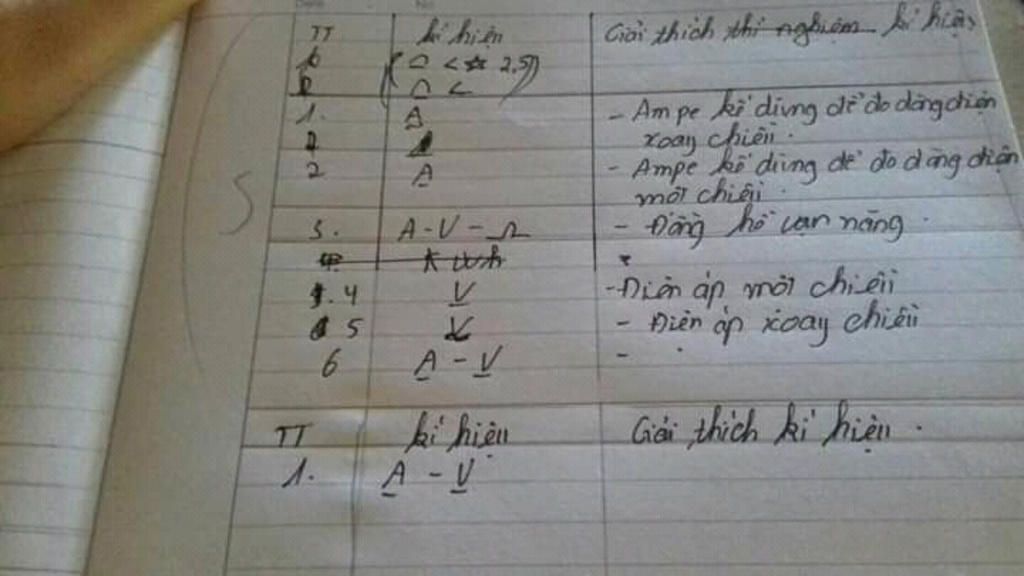 TT kí hiện Giải thích thí nghiệm kí hiện
Ω < 2,5
Ω <
1. A - Ampe kế dùng để đo dòng điện
xoay chiều.
2 A - Ampe kế dùng để đo dòng điện
một chiều.
3. A - V - Ω - Đồng hồ vạn năng.
kwh
4 V - Điện áp một chiều
5 V - Điện áp xoay chiều
6 A - V -
TT kí hiện Giải thích kí hiện.
1. A - V